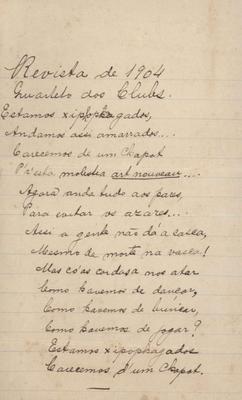 Revista de 1904
Quarteto dos Clubs.
Estamos xipophagados,
Andamos assi amarrados...
Carecemos de um Chapot
P'esta molestia art nouveau...
Agora anda tudo aos pares,
Para evitar os azares...
Assi a gente não dá a casca,
Mesmo de morte na vasca!
Mas co'as cordas a nos atar
Como havemos de dançar,
Como havemos de brincar,
Como havemos de jogar?
Estamos xipophagados
Carecemos d'um Chapot.